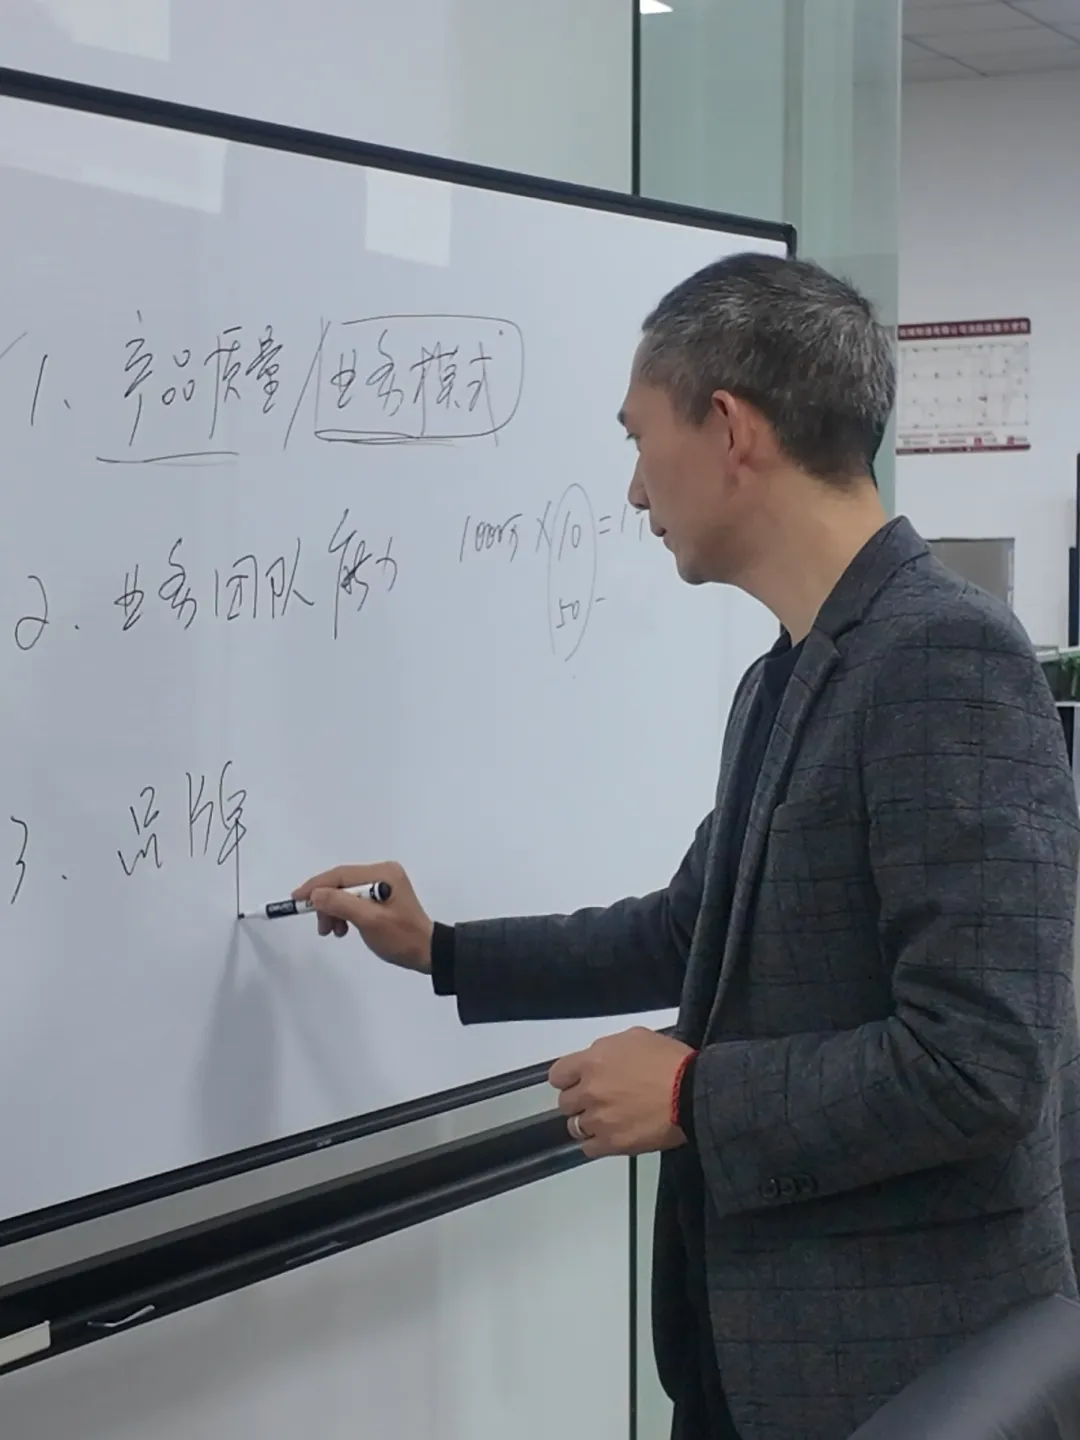 1、产品质量/业务模式
2.业务团队能力
1000万×10=1
50=
3.品牌